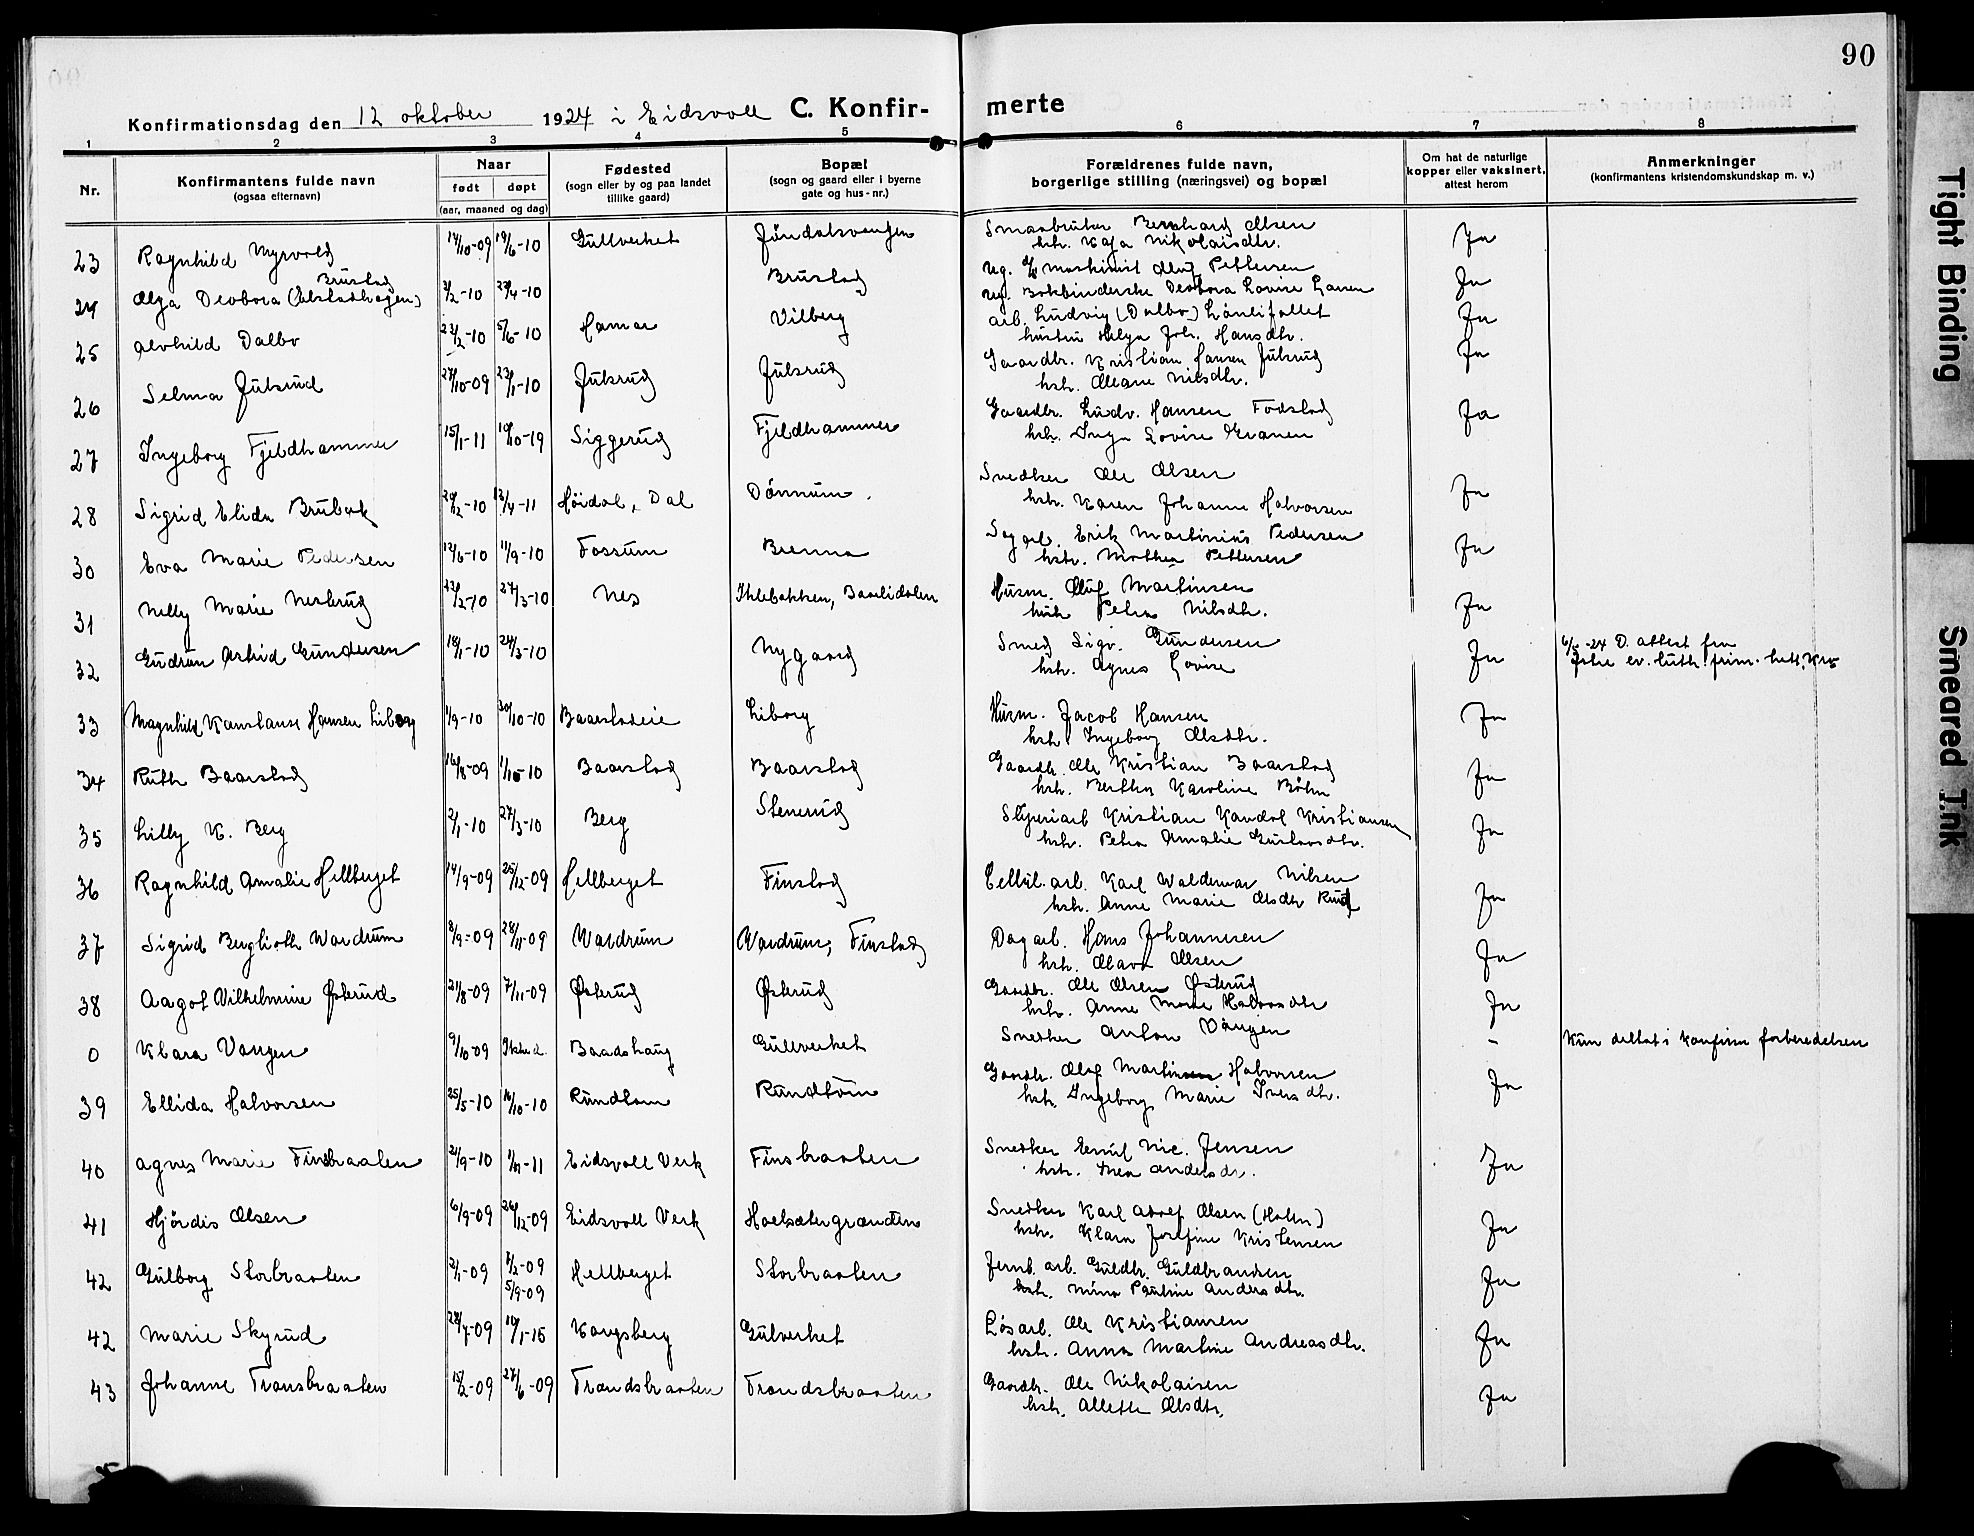 90
Konfirmationsdag den 12 oktober 1924 i Eidsvoll C. Konfir- merte
1 2 3 4 5 6 7 8
Nr. Konfirmantens fulde navn (ogsaa efternavn) Naar født døpt (aar, maaned og dag) Fødested (sogn eller by og paa landet tillike gaard) Bopæl (sogn og gaard eller i byerne gate og hus-nr.) Forældrenes fulde navn, borgerlige stilling (næringsvei) og bopæl Om hat de naturlige kopper eller vaksinert, attest herom Anmerkninger (konfirmantens kristendomskundskap m. v.)
23 Ragnhild Nyrvold 14/10-09 19/6-10 Gullverket Jøndalsvangen Smaabruker Bernhard Olsen Ja
hstr. Kaja Nikolaisdtr.
Brustad
24 Olga Devbora 3/2-10 27/4-10 Brustad ug. maskinist Oluf Pettersen Ja
ug. Bokbinderske Devbora Lovise Larsen
25 Alvhild Dalbo 22/2-10 5/6-10 Hamar Vilberg arb. Ludvig (Dalbo) Ja
hustru Helga Joh. Hansdtr.
26 Selma Julsrud 27/10-09 23/1-10 Julsrud Julsrud Gaardbr. Kristian Hansen Julsrud Ja
hstr. Oleane Nilsdtr.
27 Ingeborg Fjeldhammer 15/1-11 19/10-19 Siggerud Fjeldhammer Gaardbr. Ludv. Hansen Fodstad Ja
hstr. Inga Lovise Granen
28 Sigrid Elida Brubak 20/12-10 13/4-11 Høidal, Dal Dønnum. Snedker Ole Olsen Ja
hstr. Karen Johanne Halvorsen
30 Eva Marie Pedersen 12/6-10 11/9-10 Fossum Brenna Sagarb. Erik Martinius Pedersen Ja
hstr. Mathea Pettersen
31 Nelly Marie Nesterud 23/2-10 27/3-10 Nes Ihlebakken, Baarlidalen Husm. Oluf Martinsen Ja
hustr. Petra Nilsdtr.
32 Gudrun Astrid Gundersen 14/1-10 24/3-10 Nygaard Smed Sigv. Gundersen Ja 6/5-24 D. attest fra
hstr. Agnes Lovise ev. luth. frim.
33 Magnhild Konstanse Hansen Liborg 1/9-10 30/10-10 Baarstadeie Liborg Husm. Jacob Hansen Ja
hstr. Ingeborg Olsdtr.
34 Ruth Baarstad 16/8-09 1/10-10 Baarstad Baarstad Gaardbr. Ole Kristian Baarstad Ja
hstr. Bertha Karoline Bøhn
35 Lilly K. Berg 2/1-10 27/3-10 Berg Stenerud Slyperiarb Kristian Kandol Kristiansen Ja
hstr. Petra Amalie Gustavsdtr.
36 Ragnhild Amalie Hellberget 14/9-09 25/12-09 Hellberget Finstad Cellul. arb. Karl Waldemar Nilsen Ja
hstr. Anne Marie Olsdtr Rud
37 Sigrid Berglioth Wardrum 8/9-09 28/11-09 Wardrum Wardrum, Finstad Dagarb. Hans Johannesen Ja
hstr. Olava Olsen
38 Aagot Vilhelmine Østerud 21/8-09 7/11-09 Østerud Østerud Gaardbr. Ole Olsen Østerud Ja
hstr. Anne Marie Halvorsdtr
0 Klara Vangen 9/10-09 Ikke d. Baadshaug Gullverket Snedker Anton Vangen - Kun deltat i konfirm forberedelsen
39 Ellida Halvorsen 25/5-10 16/10-10 Rundtom Rundtom Gaardbr. Oluf Martin Halvorsen Ja
hstr. Ingeborg Marie Iversdtr.
40 Agnes Marie Finsbraaten 21/9-10 -11 Eidsvoll Verk Finsbraaten Snedker Emil Nic. Jensen Ja
hstr. Thea Andersdr.
41 Hjørdis Olsen 6/9-09 26/12-09 Eidsvoll Verk Holsætergrænden Snedker Karl Adolf Olsen (Holm) Ja
hstr. Klara Josefine Kristensen
42 Gulborg Storbraaten 2/1-09 -09 Hellberget Storbraaten Jernb. arb. Guldbr. Guldbrandsen Ja
5/9-09 hstr. Mina Pauline Andersdtr.
42 Marie Skyrud 28/7-09 10/1-15 Kongsberg Gulverket Løsarb. Ole Kristiansen Ja
hstr. Anna Martine Andreasdtr.
43 Johanne Transbraaten 15/2-09 27/6-09 Trandsbraaten Trandsbraaten Gaardbr. Ole Nikolaisen Ja
hstr. Allette Olsdtr.
Tight Binding
Smeared Ink